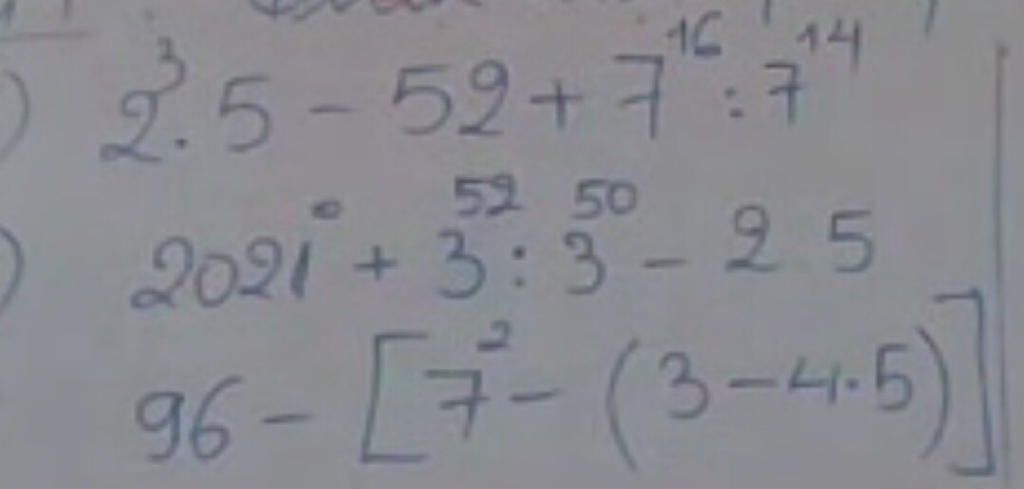 ) 2³.5 - 52 + 7¹⁶ : 7¹⁴
) 2021⁰ + 3⁵² : 3⁵⁰ - 2 5
96 - [7² - (3 - 4.5)]